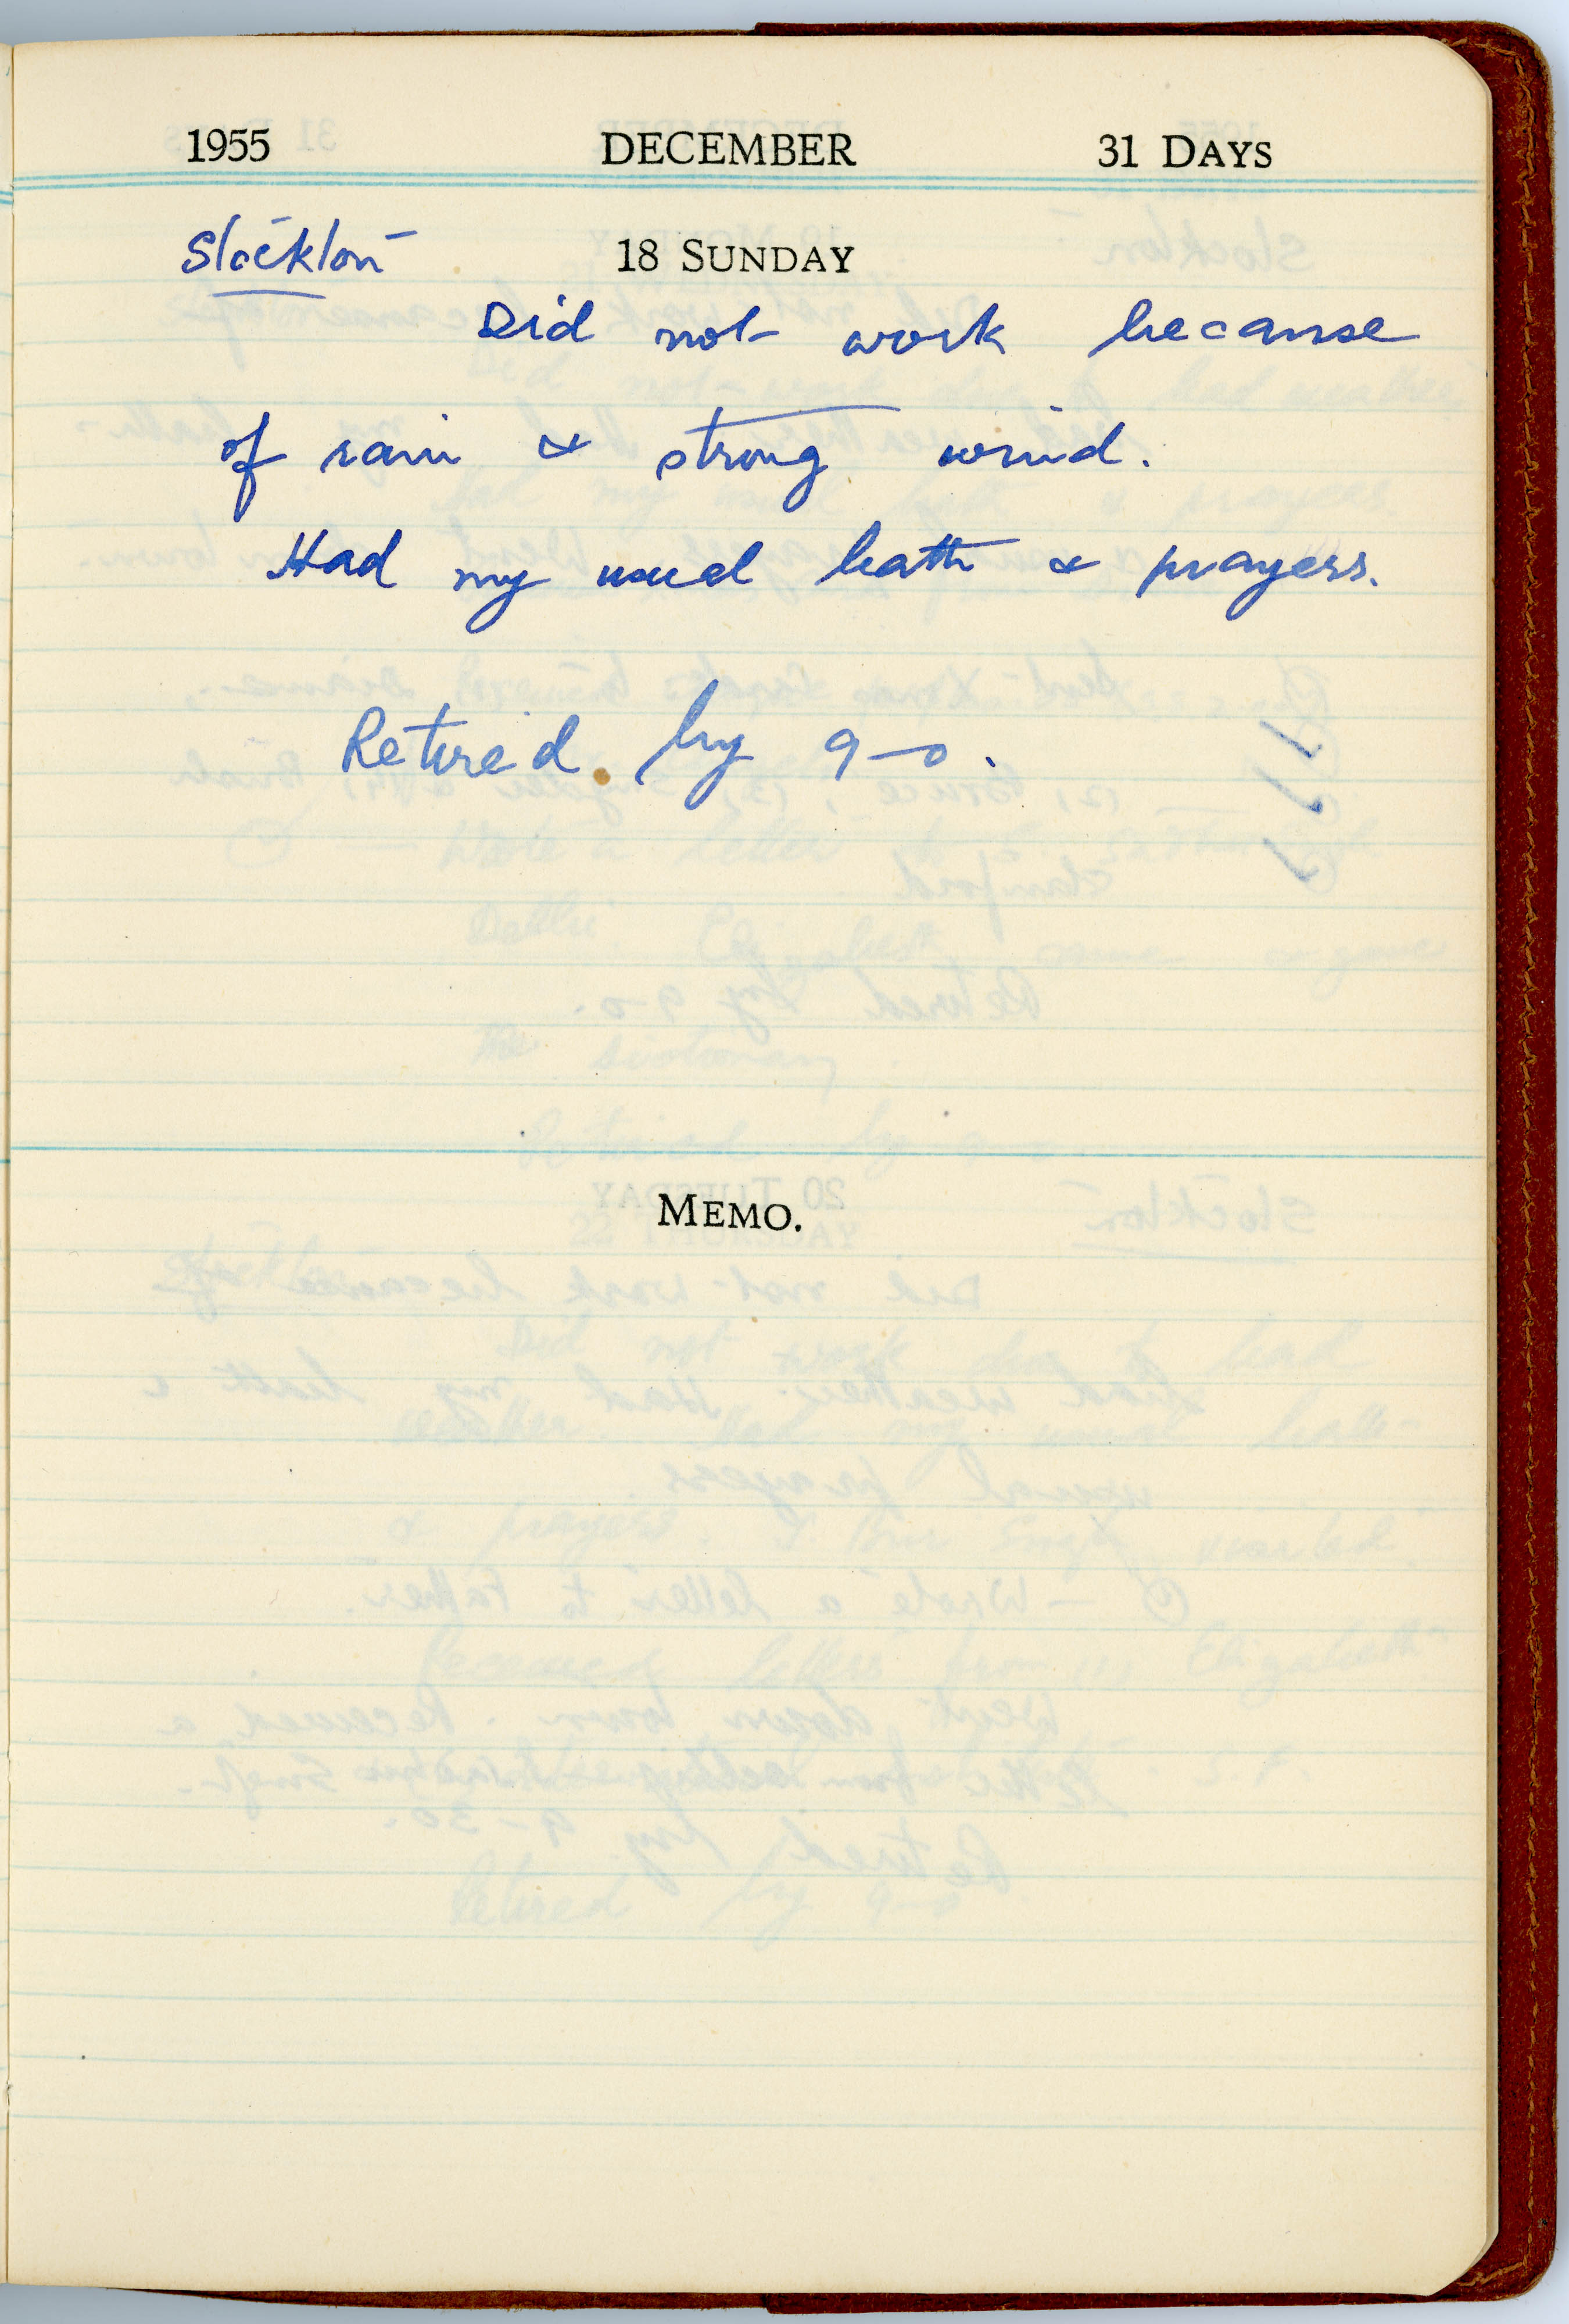 1955 DECEMBER 31 DAYS
Stockton 18 SUNDAY
Did not work because
of rain & strong wind.
Had my usual bath & prayers.
Retired by 9-0.
MEMO.